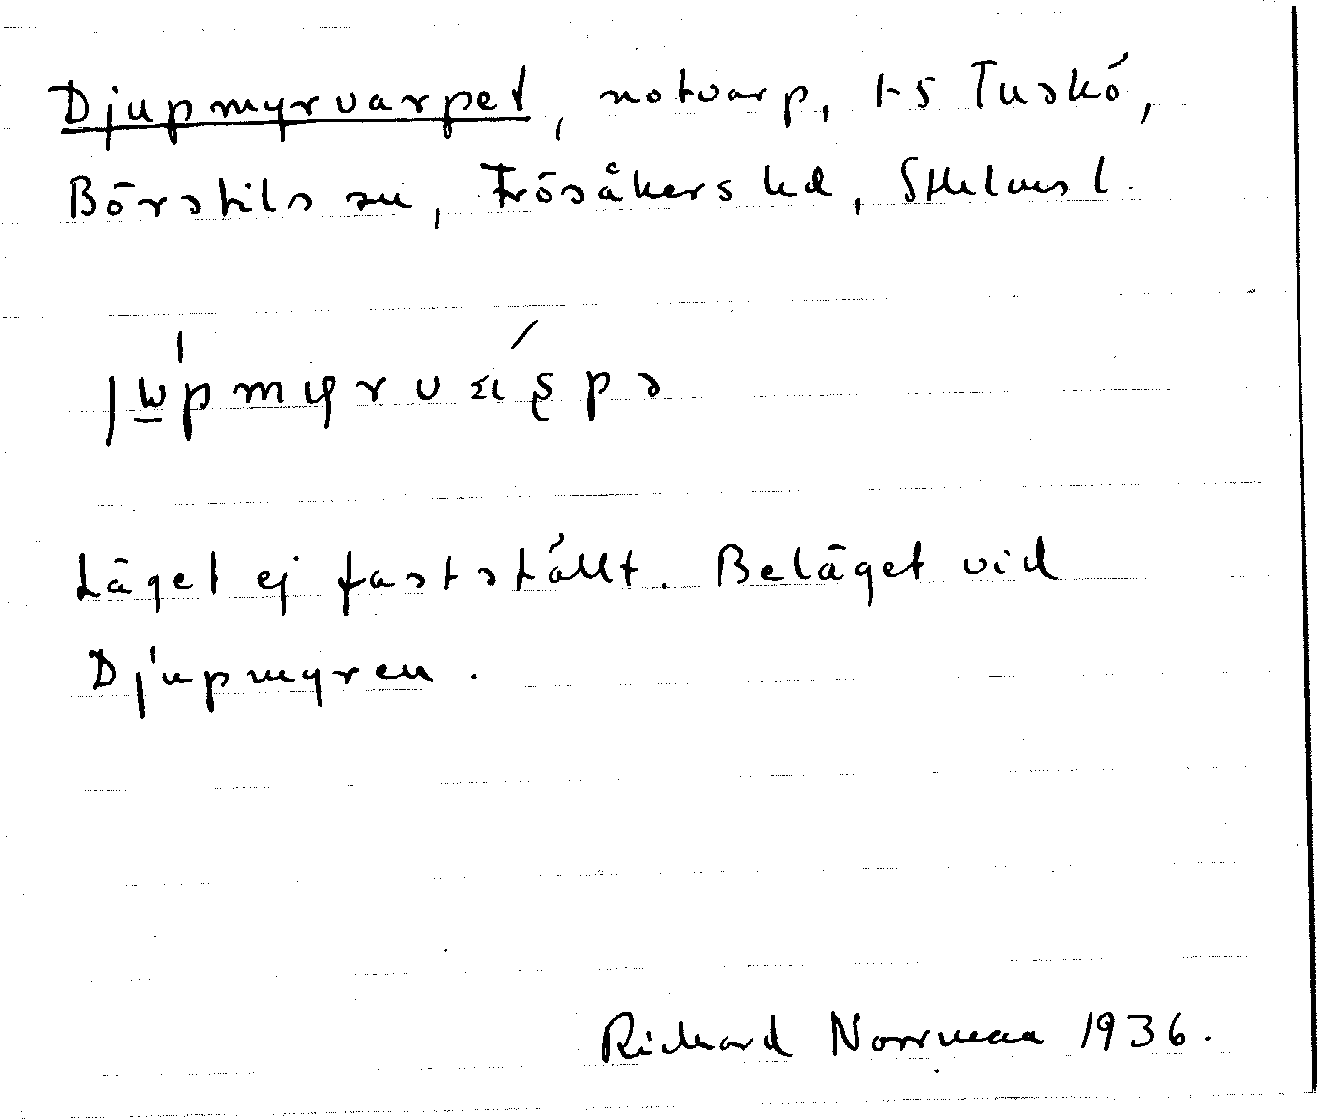 Djupmyrvarpet, notvarp, 1-5 Tuskö,
Börstils sn, Frösåkers hd, Sthlms l.
Läget ej fastställt. Beläget vid
Djupmyren.
Richard Norrman 1936.